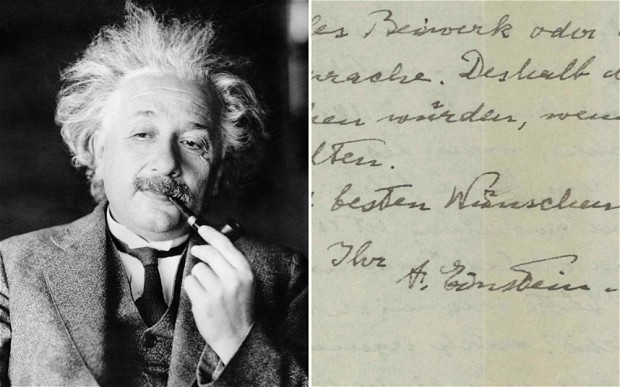 les Beiwerk oder
prache. Deshalb d
hen würden, wenn
lten.
besten Wünschen
Ihr
A. Einstein.